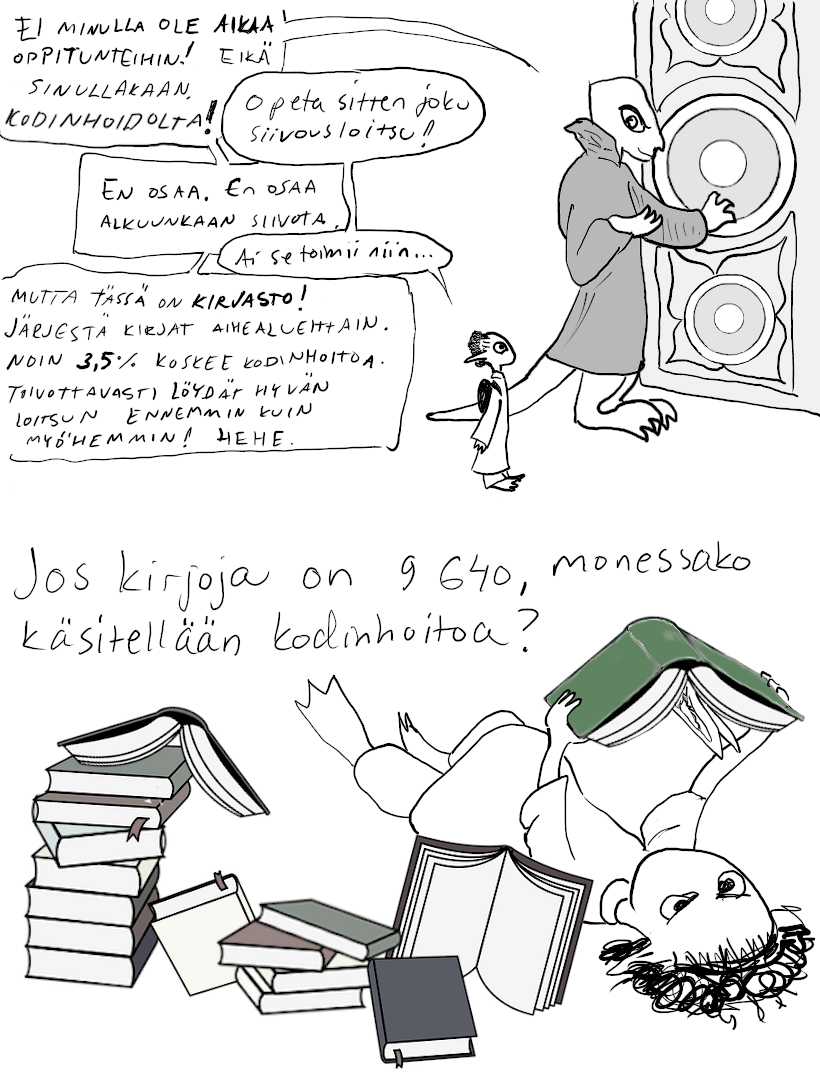 EI MINULLA OLE AIKAA
OPPITUNTEIHIN! EIKÄ
SINULLAKAAN,
KODINHOIDOLTA!
Opeta sitten joku
siivousloitsu!
EN OSAA. EN OSAA
ALKUUNKAAN SIIVOTA.
Ai se toimii niin...
MUTTA TÄSSÄ ON KIRJASTO!
JÄRJESTÄ KIRJAT AIHEALUEITTAIN.
NOIN 3,5% KOSKEE KODINHOITOA.
TOIVOTTAVASTI LÖYDÄT HYVÄN
LOITSUN ENNEMMIN KUIN
MYÖHEMMIN! HEHE.
Jos kirjoja on 9 640, monessako
käsitellään kodinhoitoa?